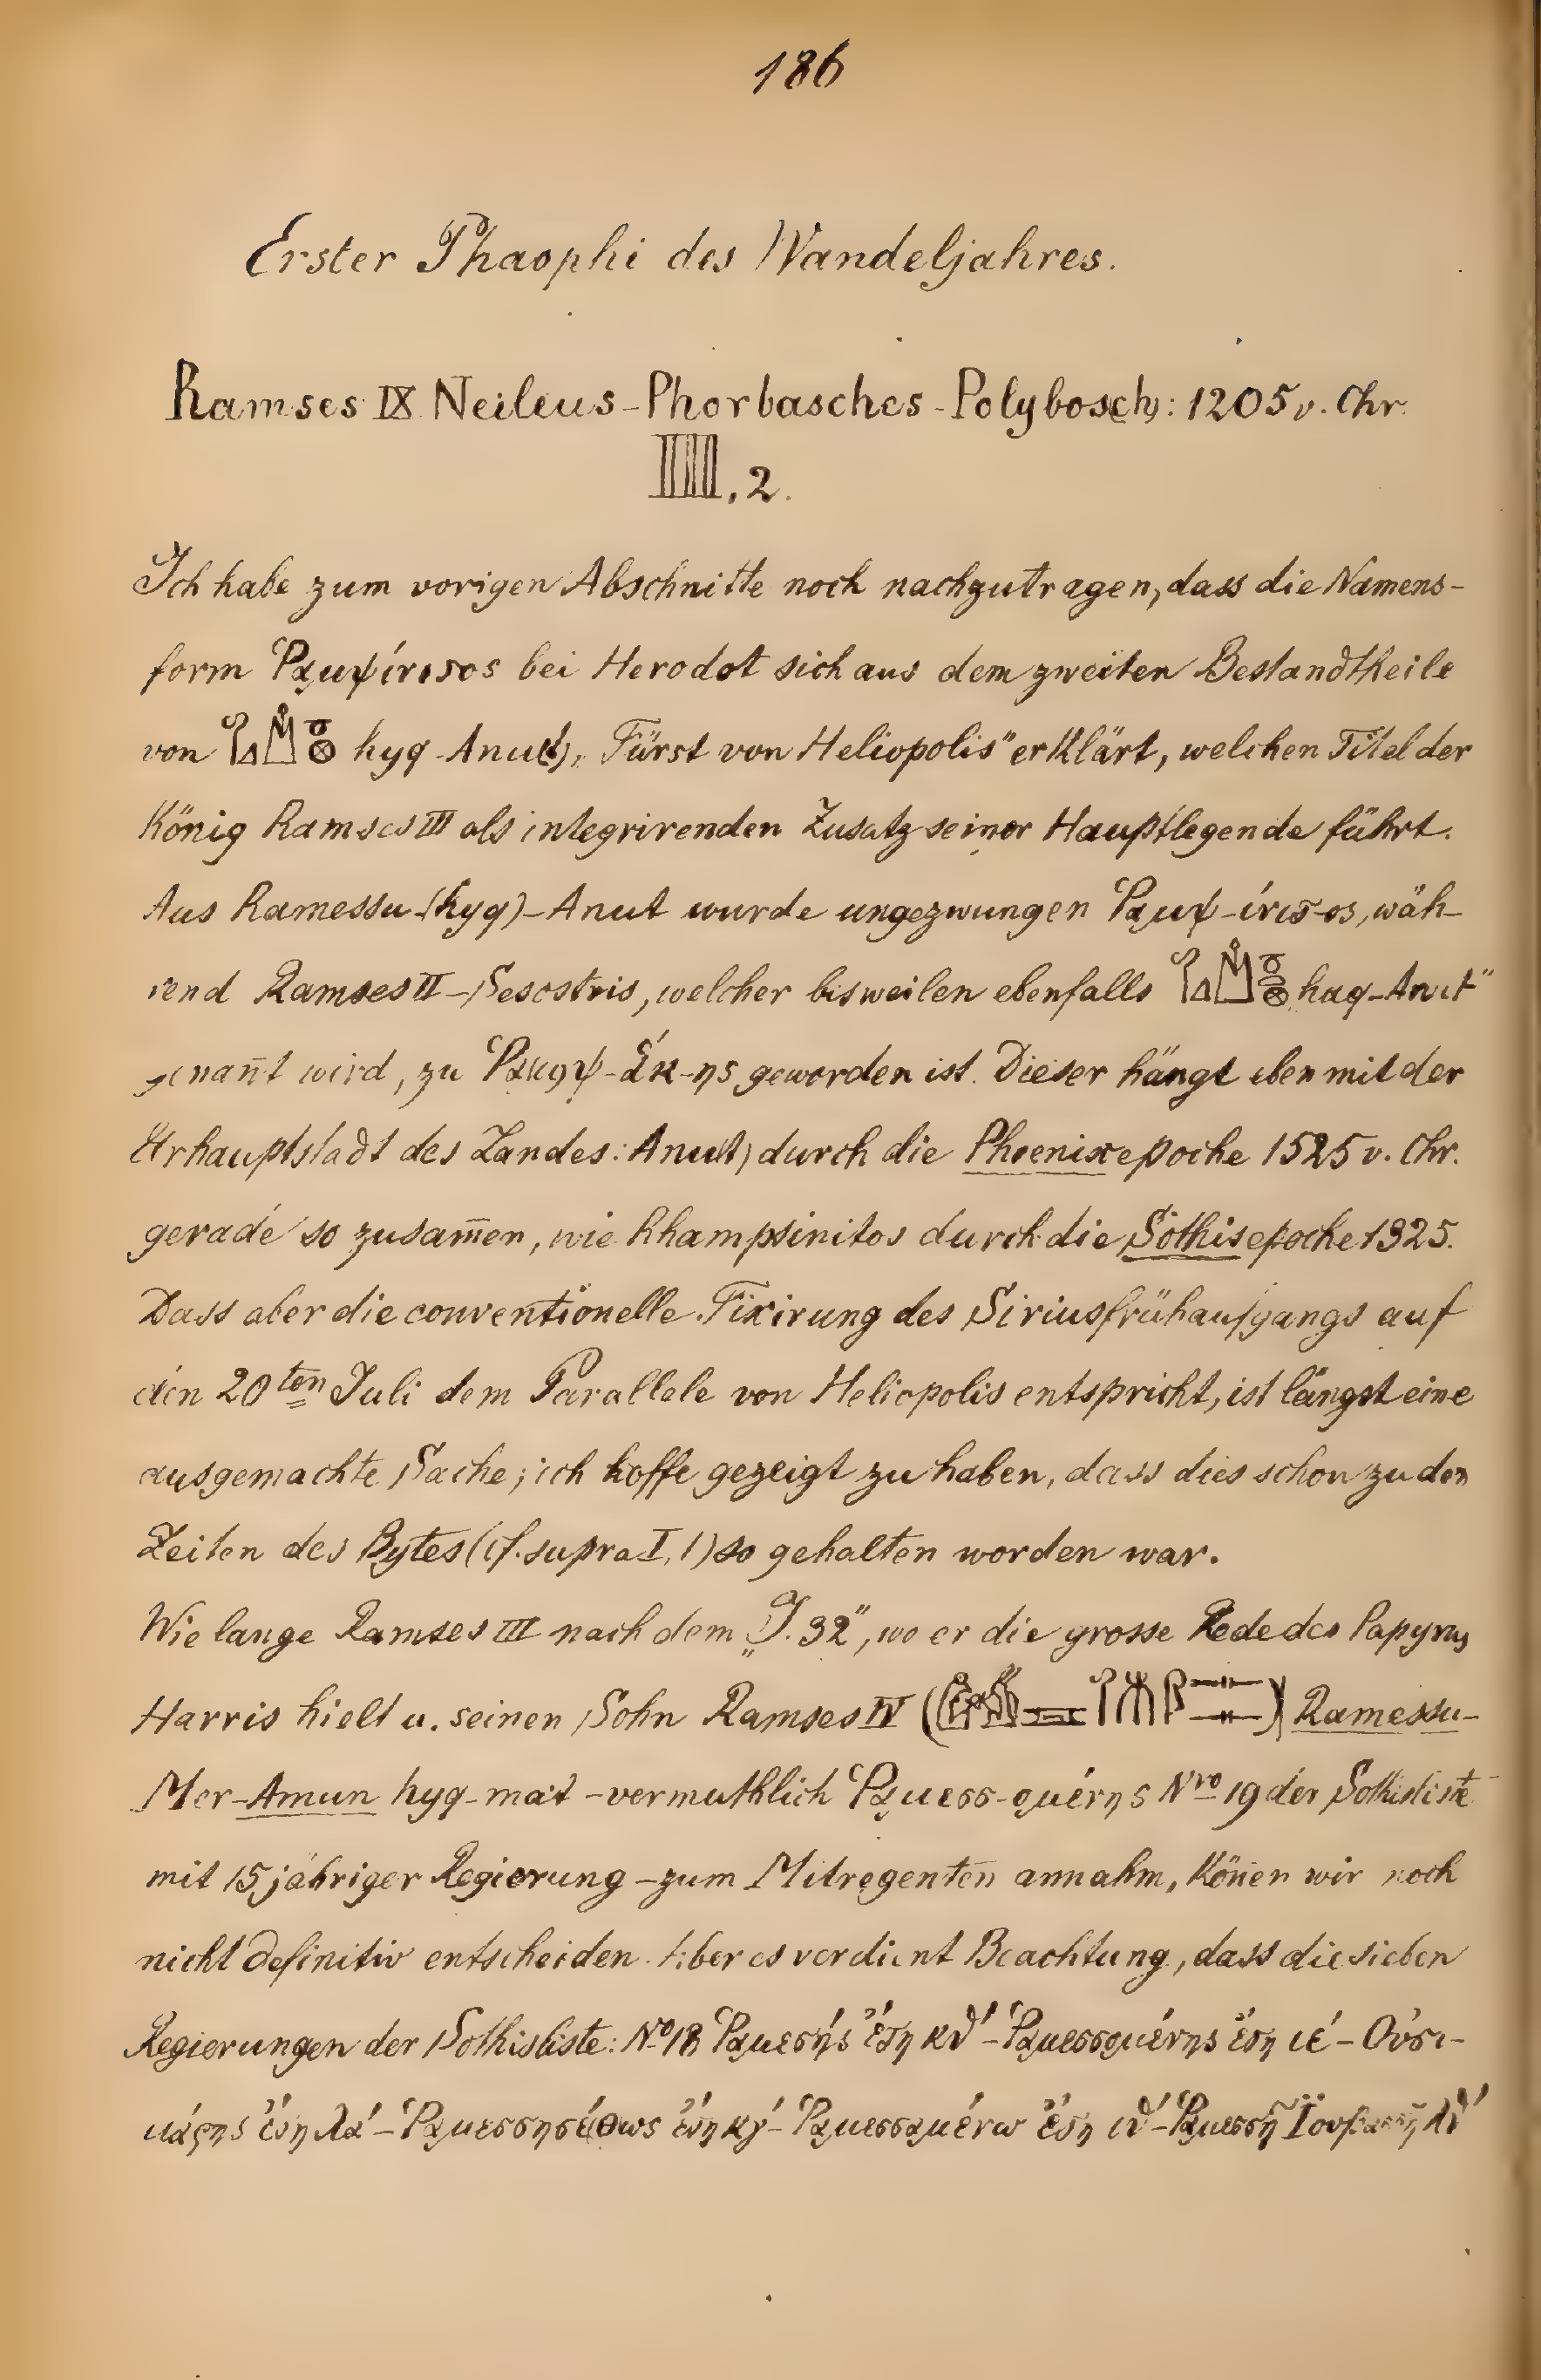 186
Erster Phaophi des Wandeljahres.
Ramses IX Neileus-Phorbasches-Polybosch): 1205 v. Chr.
IIII, 2.
Ich habe zum vorigen Abschnitte noch nachzutragen, dass die Namens-
form Ῥαμψίνιτος bei Herodot sich aus dem zweiten Bestandtheile
von hyq-Anu(t) „Fürst von Heliopolis" erklärt, welchen Titel der
König Ramses III als integrirenden Zusatz seiner Hauptlegende führt.
Aus Ramessu-(hyq)-Anut wurde ungezwungen Ῥαμψ-ίνιτ-ος, wäh-
rend Ramses II-Sesostris, welcher bisweilen ebenfalls „haq-Anut"
genan̄t wird, zu geworden ist. Dieser hängt eben mit der
Urhauptstadt des Landes: Anu(t) durch die Phoenixepoche 1525 v. Chr.
gerade so zusam̄en, wie Rhampsinitos durch die Sothisepoche 1325.
Dass aber die conventionelle Fixirung des Siriusfrühaufgangs auf
den 20ten Juli dem Parallele von Heliopolis entspricht, ist längst eine
ausgemachte Sache; ich hoffe gezeigt zu haben, dass dies schon zu den
Zeiten des Bytes (cf. supra I, 1) so gehalten worden war.
Wie lange Ramses III nach dem „J. 32", wo er die grosse Rede des Papyrus
Harris hielt u. seinen Sohn Ramses IV ( ) Ramessu-
Mer-Amun hyq-mat - vermuthlich Ῥαμεσσ-ομένης Nro 19 der Sothisliste
mit 15jähriger Regierung - zum Mitregenten annahm, kön̄en wir noch
nicht definitiv entscheiden. Aber es verdient Beachtung, dass die sieben
Regierungen der Sothisliste: No 18 Ῥαμεσής ἔτη κθ' - Ῥαμεσσομένης ἔτη ιέ - Οὐσι-
μάρης ἔτη λά - Ῥαμεσσησέωος ἔτη κγ' - Ῥαμεσσαμένω ἔτη ιθ' - Ῥαμεσσῆ Ἰουβασσῆ λθ'